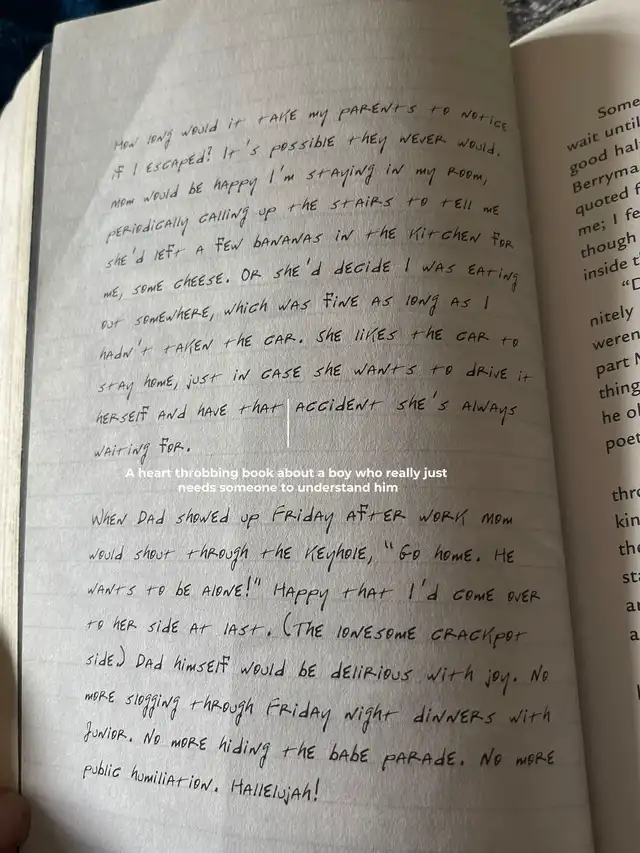 How long would it take my parents to notice
if I escaped? It's possible they never would.
Mom would be happy I'm staying in my room,
periodically calling up the stairs to tell me
she'd left a few bananas in the kitchen for
me, some cheese. Or she'd decide I was eating
out somewhere, which was fine as long as I
hadn't taken the car. She likes the car to
stay home, just in case she wants to drive it
herself and have that accident she's always
waiting for.
A heart throbbing book about a boy who really just
needs someone to understand him
When Dad showed up Friday after work Mom
would shout through the keyhole, "Go home. He
wants to be alone!" Happy that I'd come over
to her side at last. (The lonesome crackpot
side.) Dad himself would be delirious with joy. No
more slogging through Friday night dinners with
Junior. No more hiding the babe parade. No more
public humiliation. Hallelujah!
Some
wait until
good hal
Berryma
quoted f
me; I fe
though
inside t
"D
nitely
weren
part M
thing
he ol
poet
thro
kin
the
sta
a
a